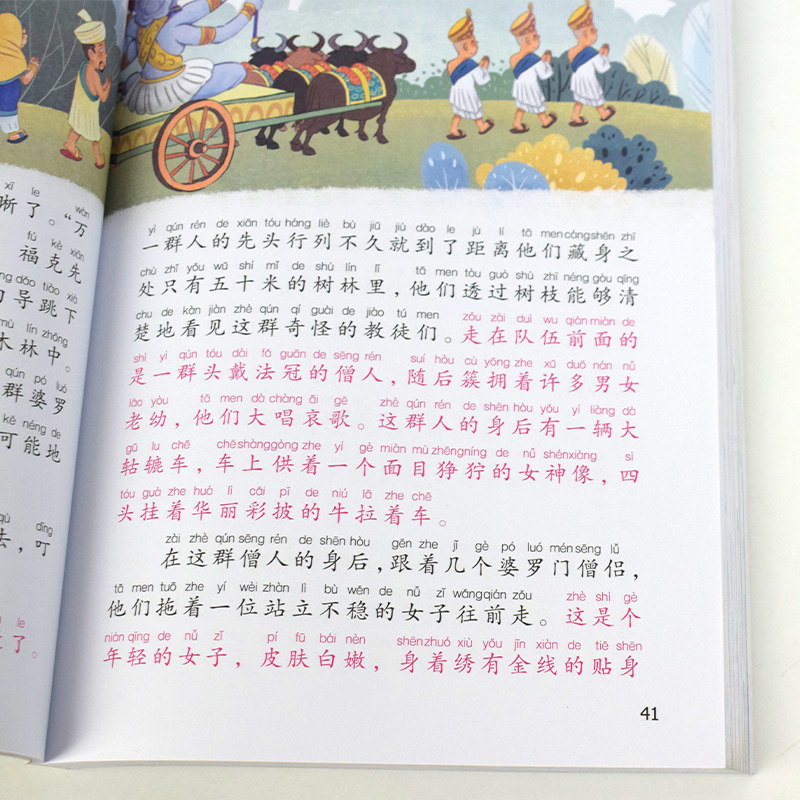 xī le wàn
晰了。“万
fú kè xiān
福克先
dǎo tiào xià
导跳下
mù lín zhōng
木林中。
qún pó luó
群婆罗
kě néng de
可能地
qù dīng
去，叮
le
了。
yì qún rén de xiān tóu háng liè bù jiǔ jiù dào le jù lí tā men cáng shēn zhī
一群人的先头行列不久就到了距离他们藏身之
chù zhǐ yǒu wǔ shí mǐ de shù lín lǐ tā men tòu guò shù zhī néng gòu qīng
处只有五十米的树林里，他们透过树枝能够清
chu de kàn jiàn zhè qún qí guài de jiào tú men zǒu zài duì wu qián miàn de
楚地看见这群奇怪的教徒们。走在队伍前面的
shì yì qún tóu dài fǎ guān de sēng rén suí hòu cù yōng zhe xǔ duō nán nǚ
是一群头戴法冠的僧人，随后簇拥着许多男女
lǎo yòu tā men dà chàng āi gē zhè qún rén de shēn hòu yǒu yí liàng dà
老幼，他们大唱哀歌。这群人的身后有一辆大
gū lu chē chē shàng gòng zhe yí gè miàn mù zhēng níng de nǚ shén xiàng sì
轱辘车，车上供着一个面目狰狞的女神像，四
tóu guà zhe huá lì cǎi pī de niú lā zhe chē
头挂着华丽彩披的牛拉着车。
zài zhè qún sēng rén de shēn hòu gēn zhe jǐ gè pó luó mén sēng lǚ
在这群僧人的身后，跟着几个婆罗门僧侣，
tā men tuō zhe yí wèi zhàn lì bù wěn de nǚ zǐ wǎng qián zǒu zhè shì gè
他们拖着一位站立不稳的女子往前走。这是个
nián qīng de nǚ zǐ pí fū bái nèn shēn zhuó xiù yǒu jīn xiàn de tiē shēn
年轻的女子，皮肤白嫩，身着绣有金线的贴身
41